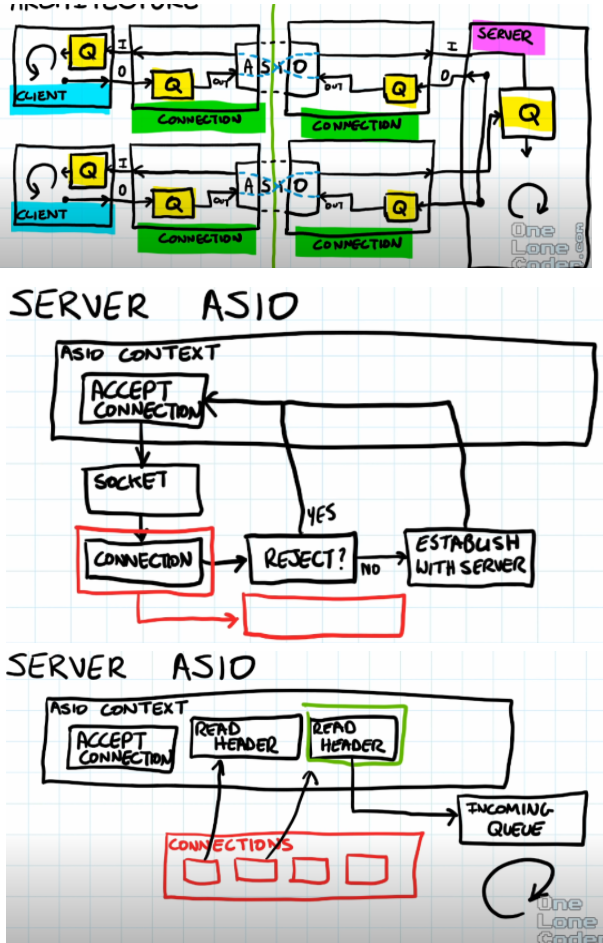 ARCHITECTURE
Q I
O
CLIENT
Q OUT
CONNECTION
A S I O
OUT Q
CONNECTION
I
O
SERVER
Q
Q I
O
CLIENT
Q OUT
CONNECTION
A S I O
OUT Q
CONNECTION
One
Lone
Coder.com
SERVER ASIO
ASIO CONTEXT
ACCEPT
CONNECTION
SOCKET
CONNECTION
REJECT?
YES
NO
ESTABLISH
WITH SERVER
SERVER ASIO
ASIO CONTEXT
ACCEPT
CONNECTION
READ
HEADER
READ
HEADER
INCOMING
QUEUE
CONNECTIONS
One
Lone
Coder